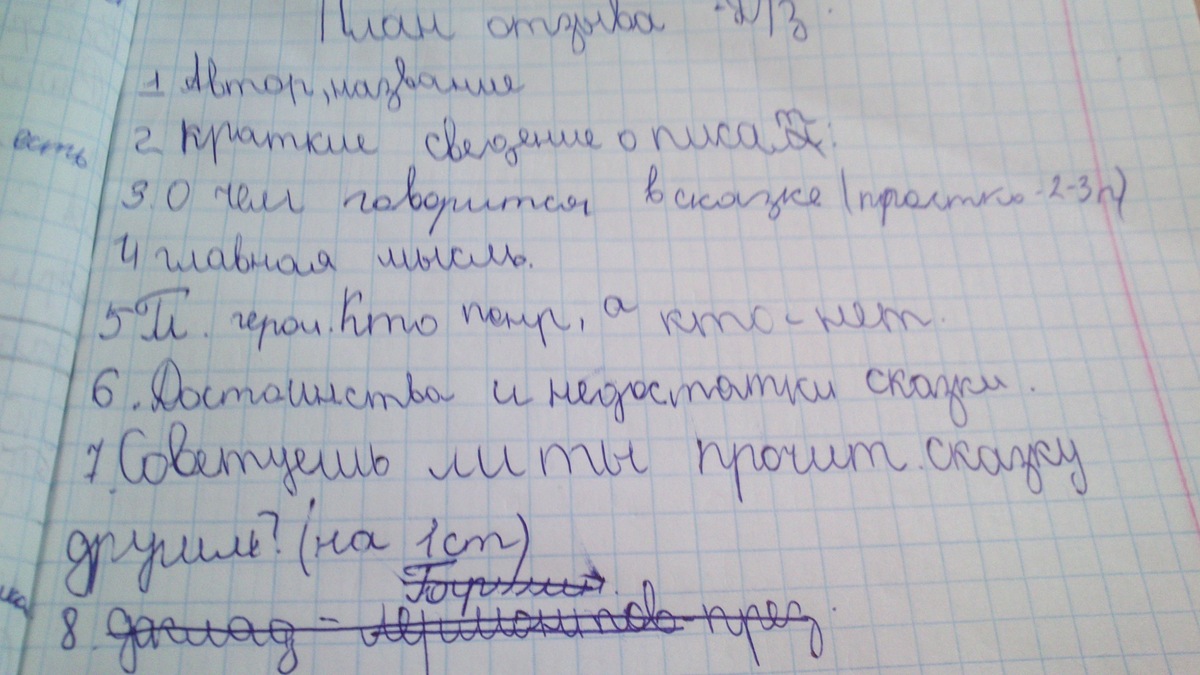 План отзыва Д/з.
есть
1 Автор, название
2 краткие сведение о писат:
3. О чем говорится в сказке (простко - 2-3 п)
4 главная мысль.
5 Гл. герои. Кто понр, а кто - нет.
6. Достоинства и недостатки сказки.
7. Советуешь ли ты прочит. сказку
другим? (на 1 ст)
8. доклад - Лермонтов - през.